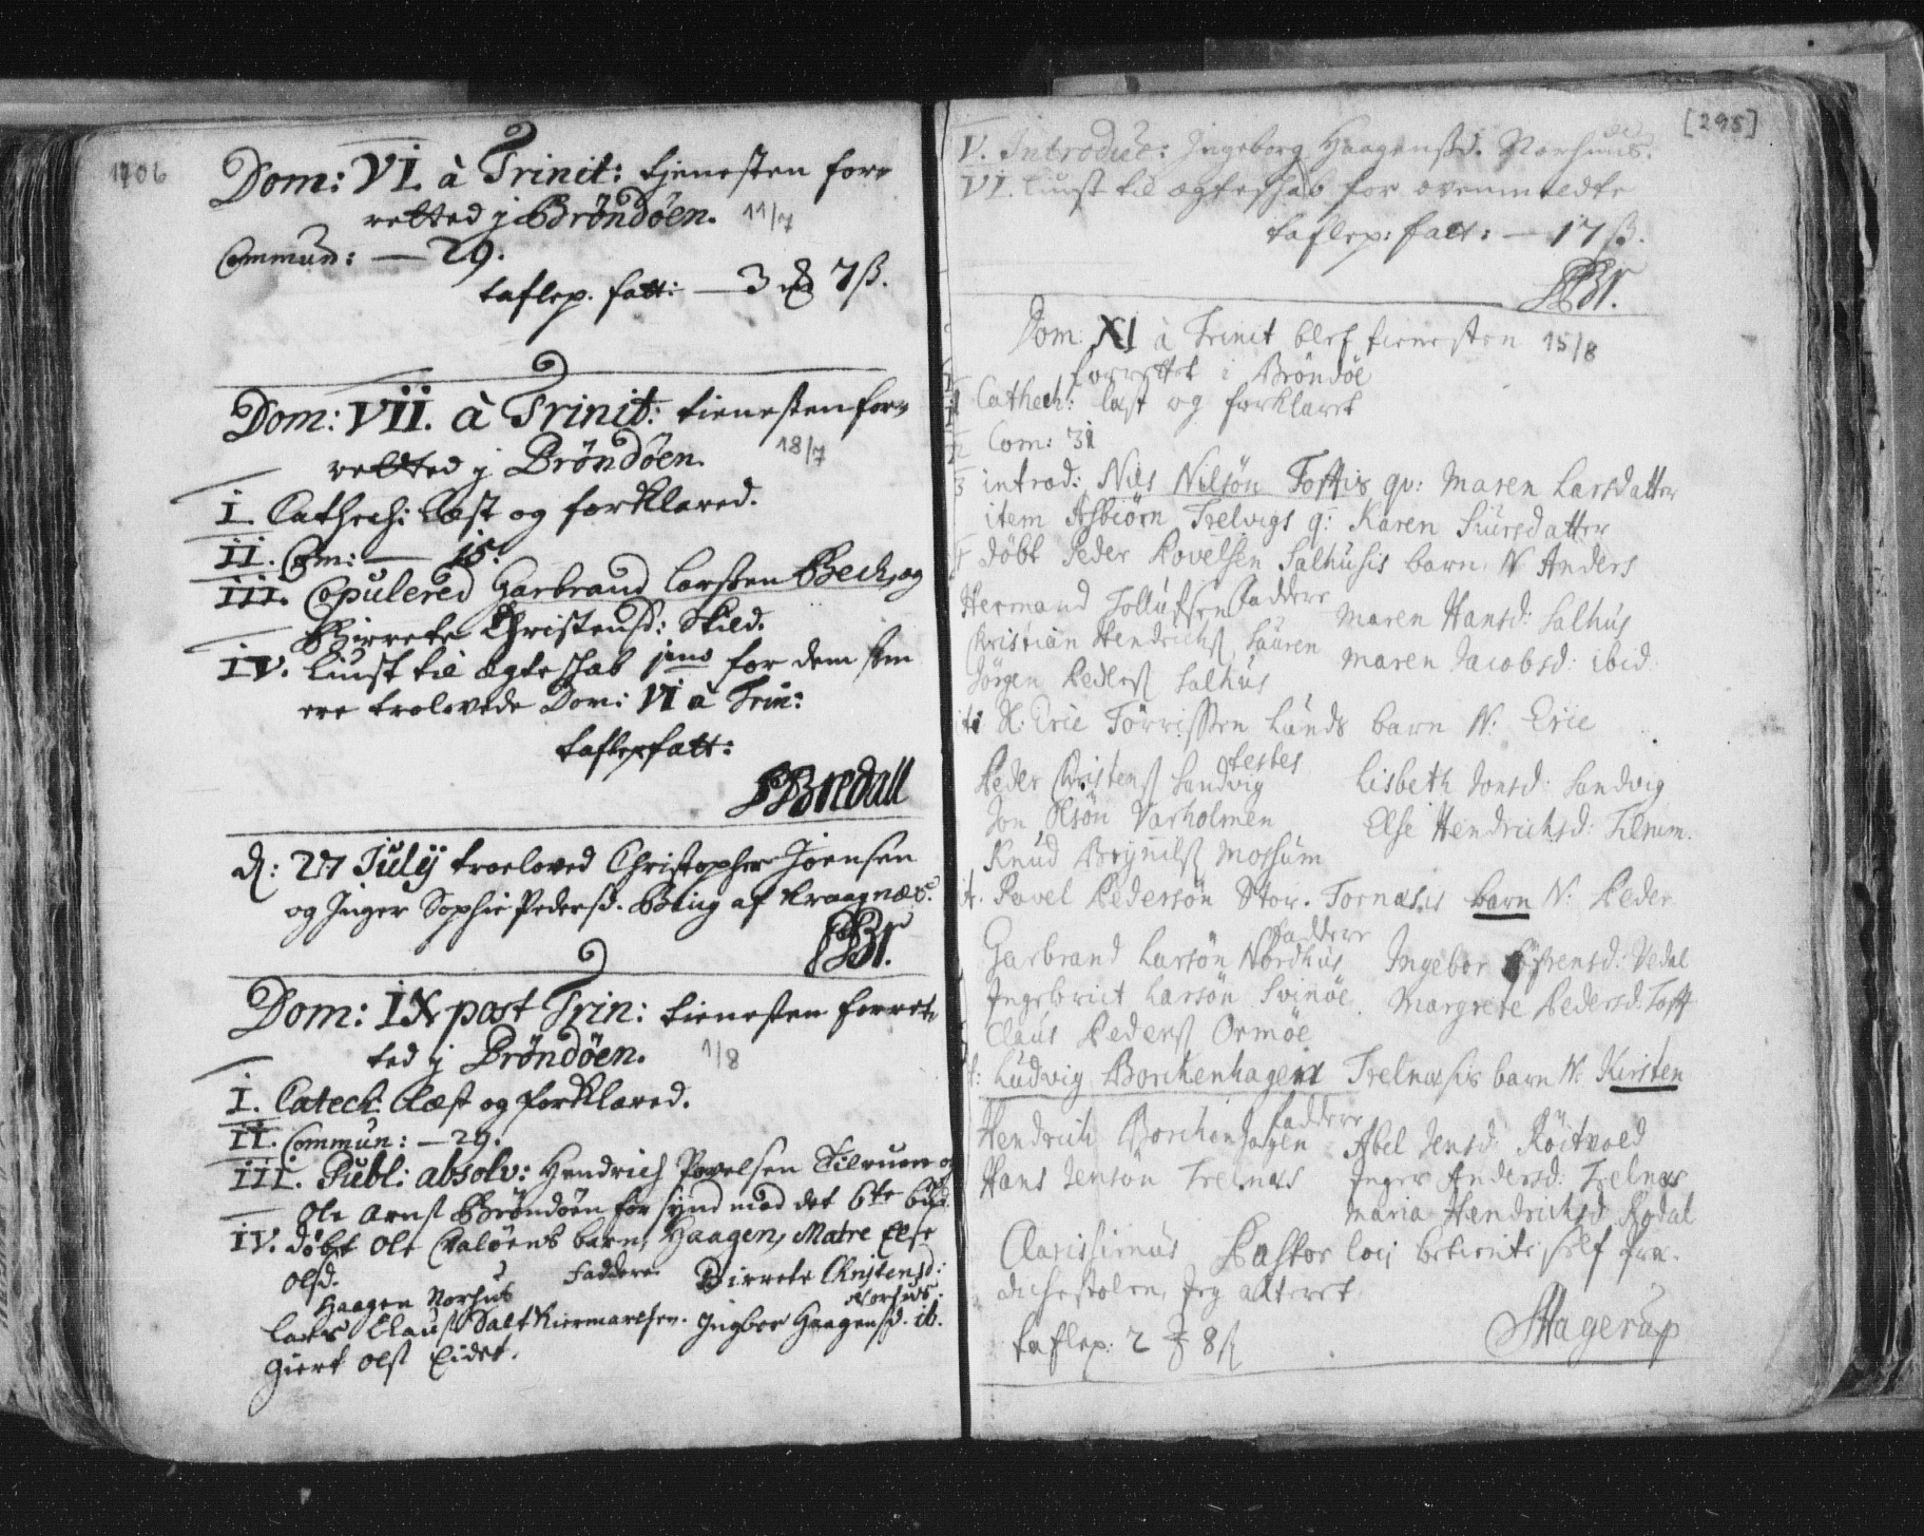 1706
Dom: VI. à Trinit: tjenesten for=
retted j Brøndøen. 11/7
Commun: — 29.
taflep. fatt: — 3 7 ß.
Dom: VII. à Trinit: tienesten for=
retted j Brøndøen. 18/7
I. Cathech: læst og forklared.
II. Com: — 15.
III. Copulered Garbrand Larssen Bech, og
Birrete Christensd: Skild.
IV. Liust til ægteskab for dem som
ere trolovede Dom: VI à Trin:
taflep fatt:
Bredall
d: 27 Julij troeloved Christopher Joensen
og Inger Sophie Pedersd. Bling af Kraagnæs.
Dom: IX post Trin: tienesten forret
ted j Brøndøen. 1/8
I. Catech. læst og forklared.
II. Commun: — 29.
III. Publ: absolv: Hendrich Povelsen Tilrum
Ole Arnsß Brøndøen for synd mod det 6te bud.
IV. døbt Ole barn, Haagen, Matre Else
Olsd.
Faddere Birrete Christensd:
Haagen Norhus Norhuus.
Lars Clausß Ingbor Haagensd. ib.
Giert Olsß Eidet.
[295]
V. Introduc: Ingeborg Haagensd. Norhuus.
VI. liust til ægteskab for ovenmeldte
taflep: fatt: — 17 ß.
Dom: XI à Trinit blef tienesten 15/8
forrettet i Brøndøe
1 Cathech: læst og forklaret
2 Com: 31
3 introd: Nils Nilsön Toftis qv: Maren Larsdatter
item Asbiörn Trelvigs q: Karen Siursdatter
döbt Peder Povelsen Salhusis barn N Anders
Faddere
Hermand Tollufsen Maren Hansd: Salhus
Christian Hendrichsß Maren Jacobsd: ibid:
Jörgen Pedersß Salhus
it: H: Eric Törrissen Lunds barn N: Eric
testes
Peder Christensß Sandvig Lisbeth Jonsd: Sandvig
Jon Olsön Varholmen Else Hendrichsd: Tilrum.
Knud Brynilsß Mossum
it. Povel Pedersön Stor. Tornæsis barn N: Peder
faddere
Garbrand Larsön Nordhus Ingebor Vedal
Ingebrict Larsön Svinöe Margrete Pedersd: Toft
Claus Pedersß Ormöe
it: Ludvig Borchenhagen Trelnæsis barn N: Kirsten
faddere
Hendrich Borchenhagen Abel Jensd: Röitvold
Hans Jensön Trelnæs Inger Andersd: Trelnæs
Maria Hendrichsd Rodal
Clarissimus Pastor loci betiente self præ-
dichestolen, Jeg alteret
taflep: 2 8 ß
Hagerup